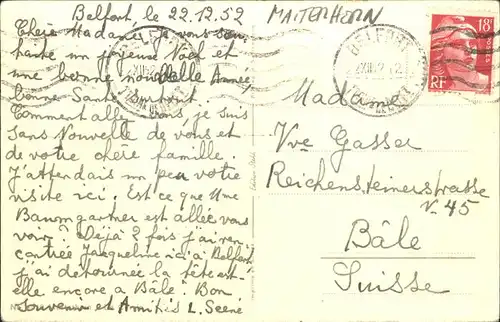 Belfort le 22.12.52
Chère Madame je vous sou
haite un joyeux Noël et
une bonne nouvelle Année,
bonne Santé surtout.
Comment allez vous, je suis
sans Nouvelle de vous et
de votre chère famille.
J'attendais un peu votre
visite ici. Est ce que Mme
Baumgartner est allée vous
voir? Déjà 2 fois j'ai ren
contrée Jacqueline ici à Belfort
j'ai détournée la tête est-
elle encore à Bâle? Bon
Souvenir et Amitiés L.
MATTERHORN
BELFORT
18F
RF
Madame
Vve Gasser
Reichensteinerstrasse
N. 45
Bâle
Suisse